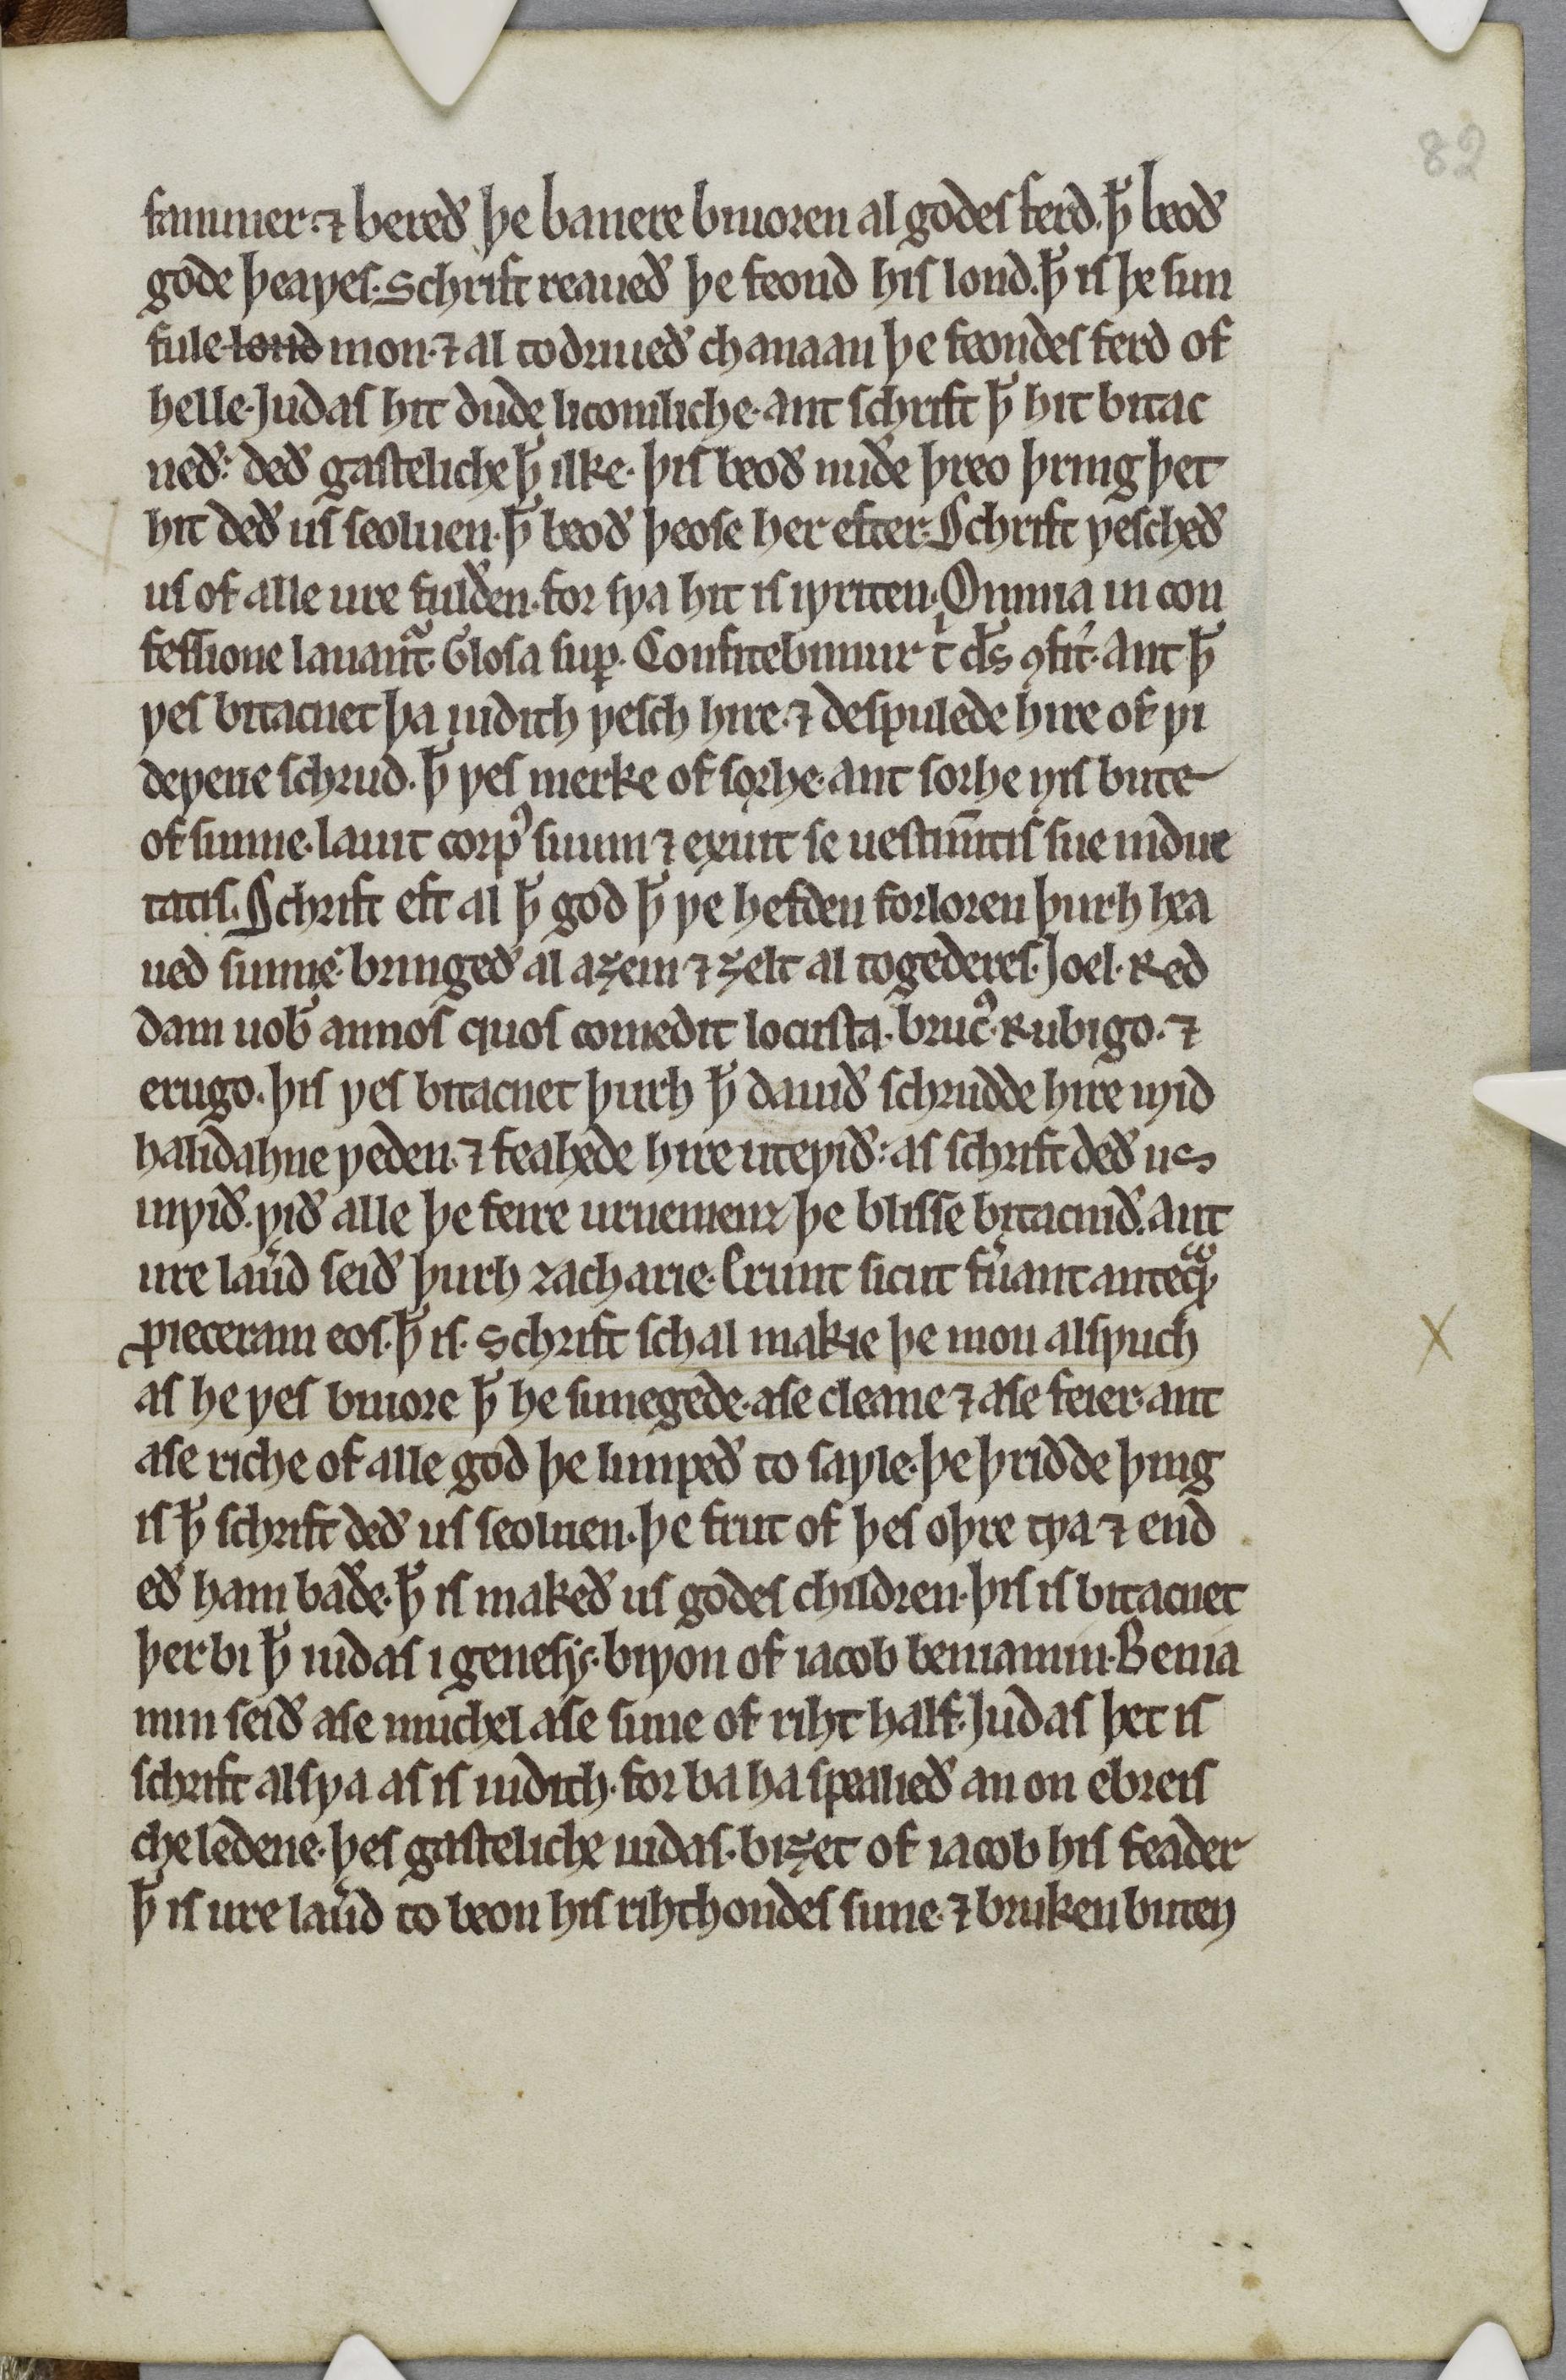 82
fanuuer ⁊ bereð þe banere biuoren al godes ferd. ꝥ beoð
gode þeaƿes. Schrift reaueð þe feond his lond. ꝥ is þe sun
fule lond mon. ⁊ al todriueð chanaan þe feondes ferd of
helle. Judas hit dude licomliche. ant schrift ꝥ hit bitac
neð: deð gasteliche ꝥ ilke. þis beoð nuðe þreo þring þet
hit deð us seoluen. ꝥ beoð þeose her efter. Schrift ƿescheð
us of alle ure fulðen. for sƿa hit is iƿriten. Omnia in con
fessione lauant᷑. Glosa suꝑ. Confitebimur t̾ ds̄ ꝯfit᷑. Ant ꝥ
ƿes bitacnet þa iudith ƿesch hire. ⁊ despulede hire of ƿi
deƿene schrud. ꝥ ƿes merke of sorhe. ant sorhe nis bute
of sunne. lauit corpꝰ suum ⁊ exuit se uestim̄tis sue uidue
tatis. Schrift eft al ꝥ god ꝥ ƿe hefden forloren þurh hea
ued sunne. bringeð al aȝein ⁊ ȝelt al togederes. Joel. Red
dam uob̾ annos quos comedit locusta. brucꝰ. Rubigo. ⁊
erugo. þis ƿes bitacnet þurh ꝥ dauið schrudde hire mid
halidahne ƿeden. ⁊ feahede hire uteƿið: as schrift deð us
inƿið. ƿið alle þe feire urnemenz þe blisse bitacnið. ant
ure lau̾d seið þurh zacharie. Erunt sicut fu̾ant anteqͣ
ꝓieceram eos. ꝥ is. Schrift schal makie þe mon alsƿuch
as he ƿes biuore ꝥ he sunegede. ase cleane ⁊ ase feier. ant
ase riche of alle god þe limpeð to saƿle. þe þridde þing
is ꝥ schrift deð us seoluen. þe frut of þes oþre tƿa ⁊ end
eð ham baðe. ꝥ is makeð us godes children. þis is bitacnet
þerbi ꝥ iudas i genesys. biƿon of iacob beniamin. Benia
min seið ase muchel ase sune of riht half. Judas þet is
schrift alsƿa as is iudith. for ba ha spealieð an on ebreis
che ledene. þes gasteliche iudas. biȝet of iacob his feader
ꝥ is ure lau̾d to beon his rihthondes sune. ⁊ bruken buten